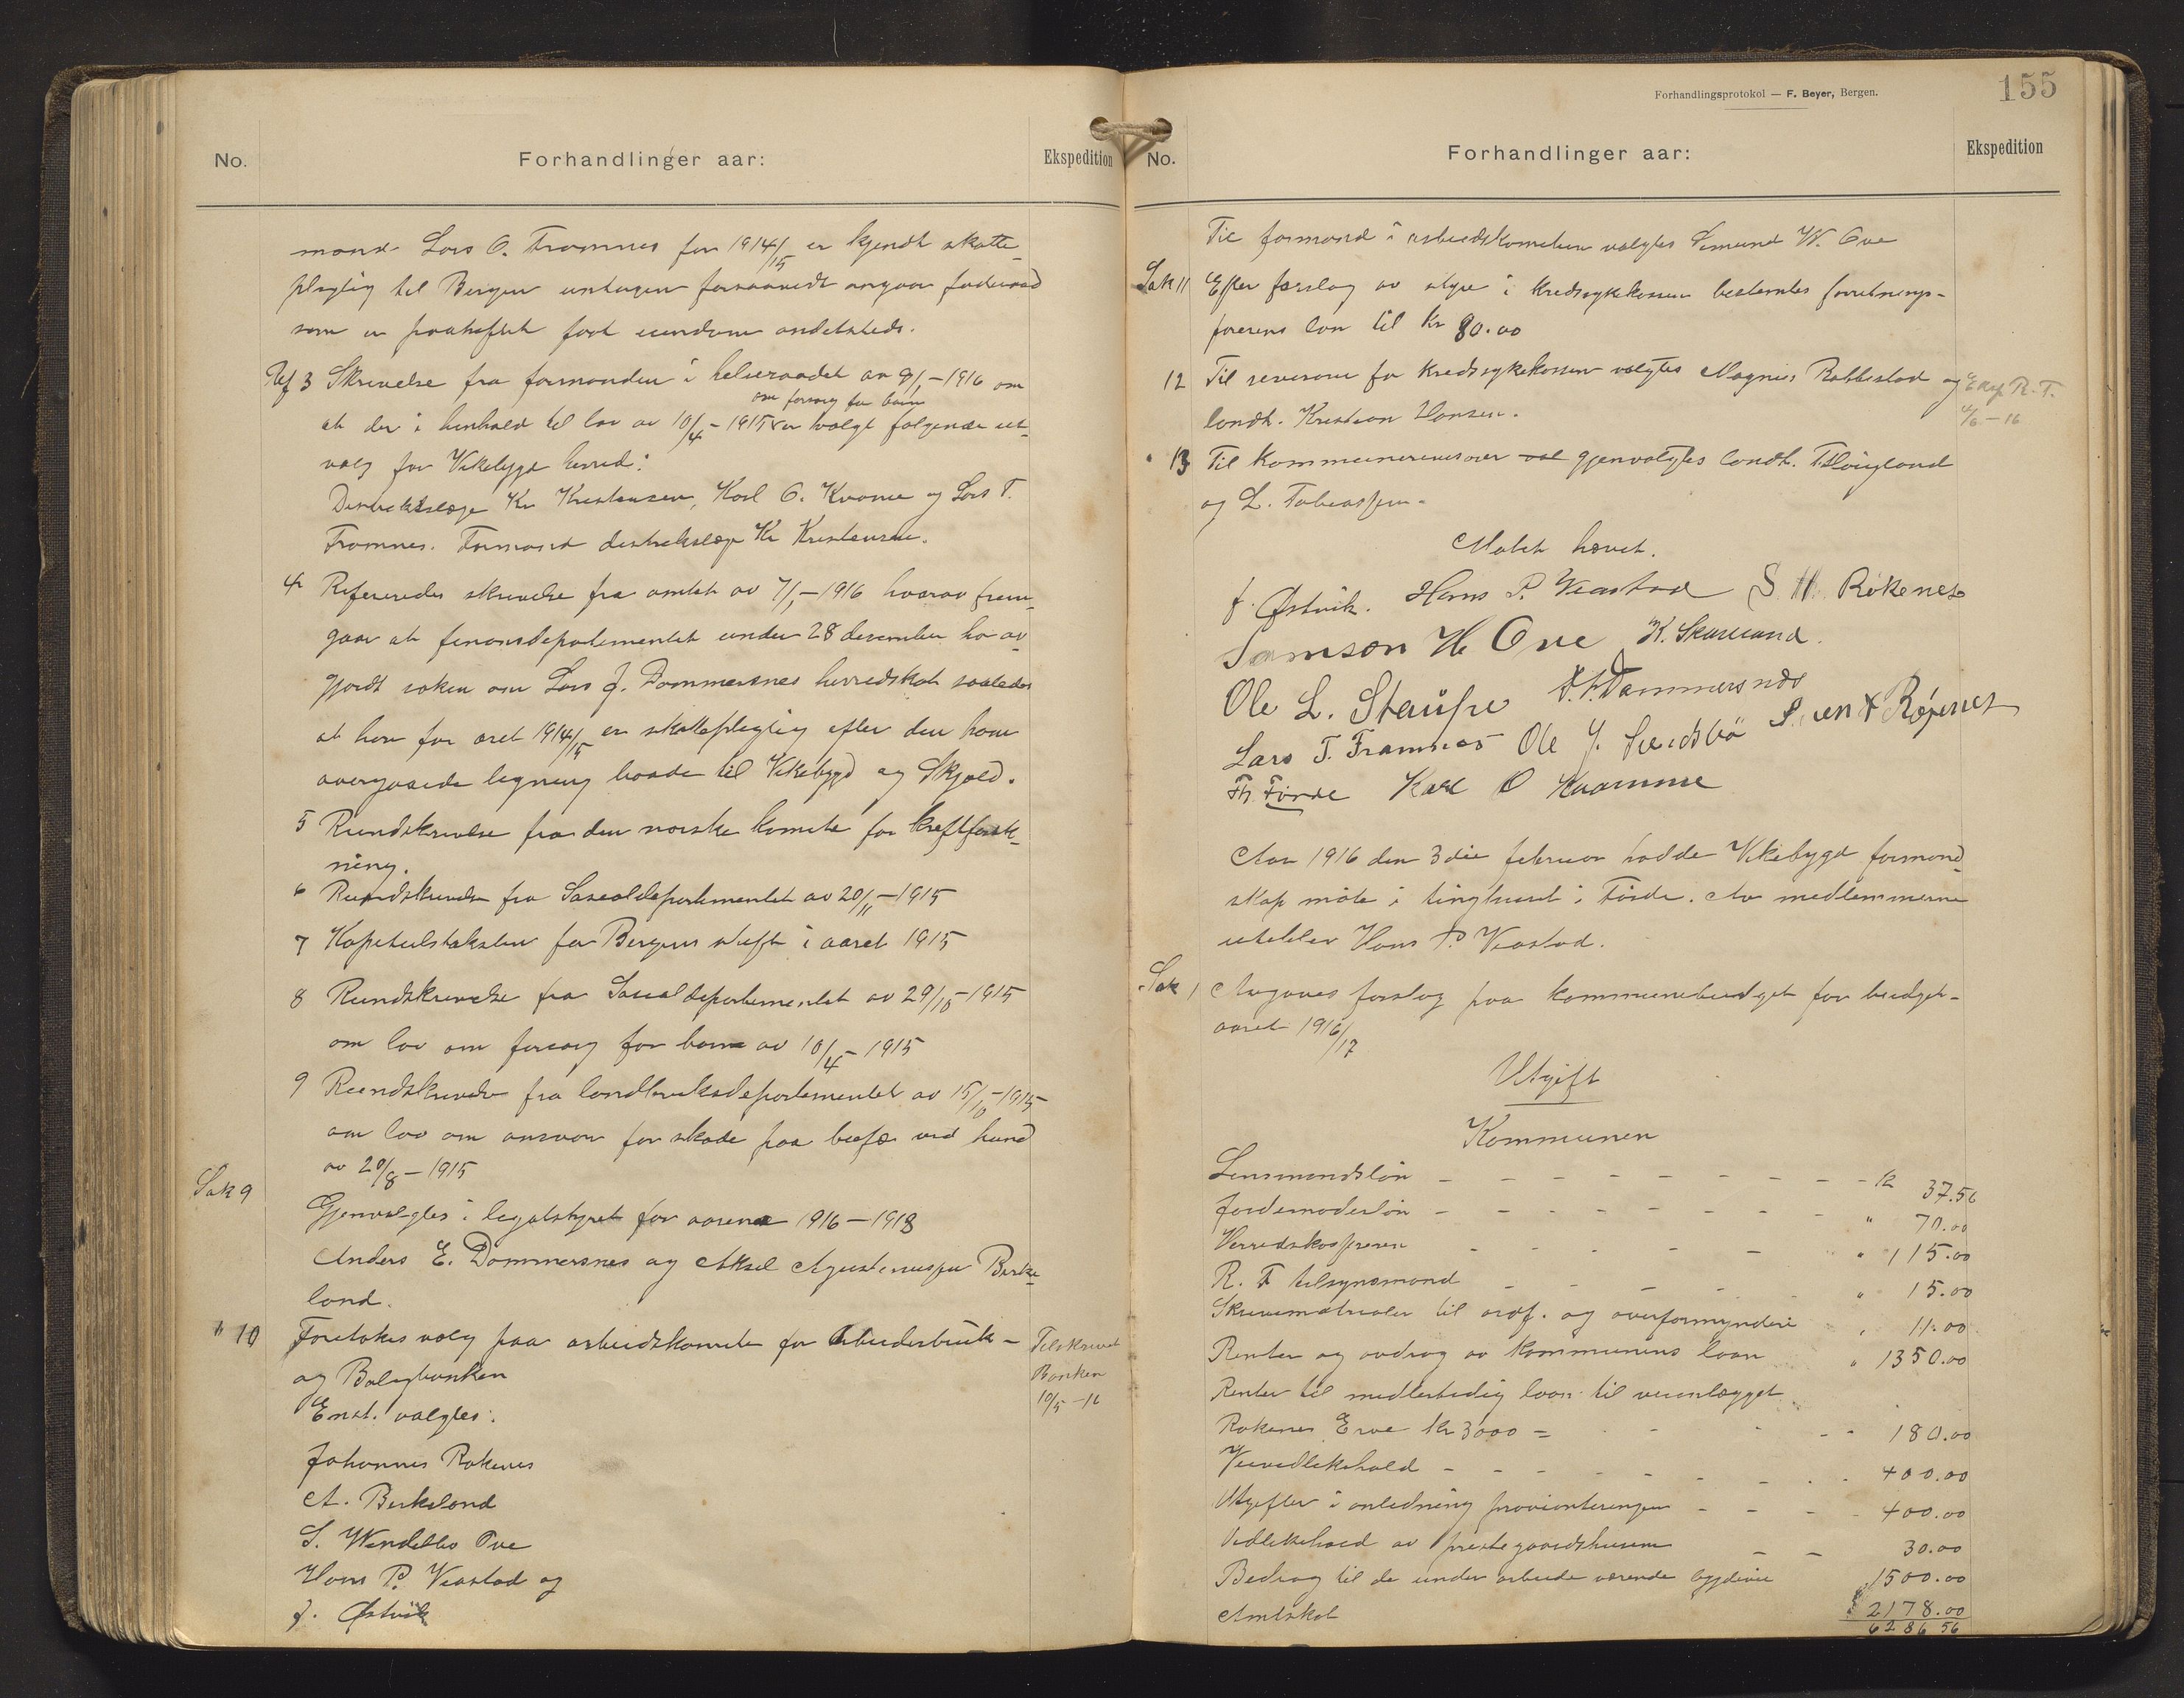 No.
Forhandlinger aar:
Ekspedition
mand Lars O. Framnes for 1914/15 er kjendt skatte-
plegtig til Bergen untagen forsaavidt angaar
som er paaheftet fast eiendom andetsteds.
Ref 3 Skrivelse fra formanden i helseraadet av 9/1 - 1916 om
om forsorg for børn
at der i henhold til lov av 10/4 - 1915 er valgt følgende ut-
valg for Vikebygd herred:
Distriktslæge Kr Kristensen, Karl O. Kvame og Lars T.
Framnes. Formand distrikslæge Kr Kristensen.
4 Refereredes skrivelse fra amtet av 7/1 - 1916 hvorav frem-
gaar at finansdepartementet under 28 desember har av-
gjordt saken om Lars J. Dommersnes herredskat saaledes
at han for aaret 1914/15 er skatteplegtig efter den ham
overgaaede ligning baade til Vikebygd og Skjold.
5 Rundskrivelse fra den norske komite for kreftforsk-
ning.
6 Rundskrivelse fra Socialdepartementet av 20/11 - 1915
7 Kapitelstaksten for Bergens stift i aaret 1915
8 Rundskrivelse fra Socialdepartementet av 29/10 - 1915
om lov om forsorg for barn av 10/4 - 1915
9 Rundskrivelse fra landbruksdepartementet av 15/10 - 1915
om lov om ansvar for skade paa bufæ ved hund
av 20/8 - 1915
Sak 9
Gjenvalgtes i legatstyret for aarene 1916 - 1918
Anders E. Dommersnes og Aksel Agustinussen Birke-
land.
" 10 Foretokes valg paa arbeidskomite for Arbeiderbruk-
og Boligbanken
Enst. valgtes:
Tilskrevet
Banken
10/5 - 16
Johannes Røkenes
A. Birkeland
S. Wendelbo Ove
Hans P. Veastad og
J. Østvik
Forhandlingsprotokol — F. Beyer, Bergen.
155
No.
Forhandlinger aar:
Ekspedition
Til formand i arbeidskomiteen valgtes Simund W. Ove
Sak 11 Efter forslag av styre i kredssykekassen bestemtes forretnings-
førerens løn til kr 80.00
12 Til revisorer for kredssykekassen valgtes Magnus Rabbestad og
landh. Kristian Hansen.
Eksp R. T.
4/6 - 16
" 13 Til kommunerevisorer val gjenvalgtes landh. T Haugland
og L. Tobiassen.
Møtet hævet.
J. Østvik. Hans P. Veastad S. H. Røkenes
Samson H Ove K. Skaaland.
Ole L. Staupe D. Dammersnes
Lars T. Framnes Ole J. Sven Røkenes
Th. Førde Karl O Kvamme
Aar 1916 den 3die februar hadde Vikebygd formand-
skap møte i tinghuset i Førde. Av medlemmerne
uteblev Hans P. Veastad.
Sak 1 Avgaves forslag paa kommunebudget for budget-
aaret 1916/17
Utgift
Kommunen
Lensmandsløn - - - - - - - - - kr 37.56
Jordemoderløn - - - - - - - " 70.00
Herredskasserer - - - - " 115.00
R. F tilsynsmand - - - - " 15.00
Skrivematrialer til ordf. og overformynderi " 11.00
Renter og avdrag av kommunens laan " 1350.00
Renter til midlertidig laan til veianlægget
Røkenes Erve kr 3000 = - - - - 180.00
Veivedlikehold - - - - - - - - - 400.00
Utgifter i anledning provianteringen - - - - 400.00
Vedlikehold av prestegaardshusene - - 30.00
Bedrag til de under arbeide værende bygdeveie 1500.00
Amtskat 2178.00
6286 56